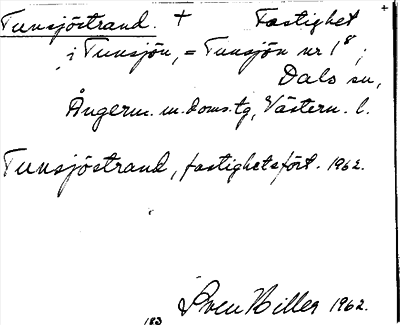 Tunsjöstrand. + Fastighet +
i Tunsjön, = Tunsjön nr 1⁸;
Dals sn,
Ångerm. m. doms.tg, Västern. l.
Tunsjöstrand, fastighetsfört. 1962.
Sven Hiller 1962.
183